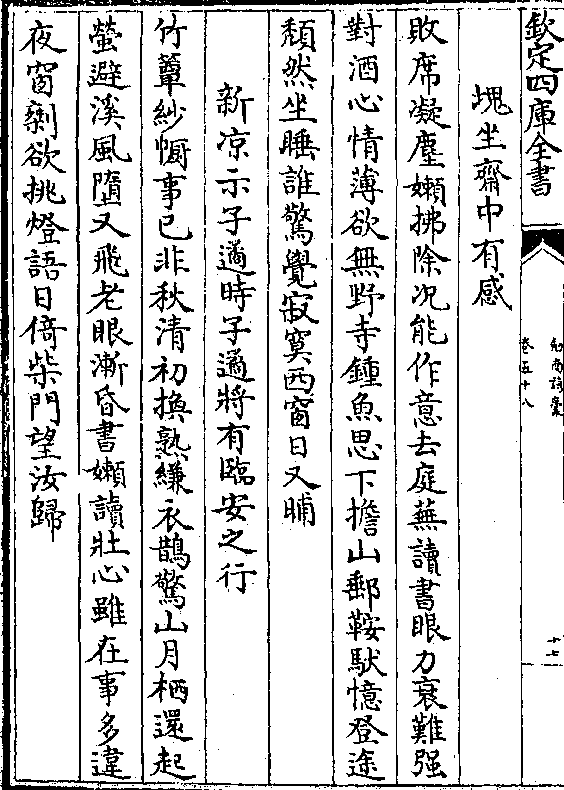 欽定四庫全書
劍南詩稾
卷五十八
十七
塊坐齋中有感
敗席凝塵嬾拂除况能作意去庭蕪讀書眼力衰難强
對酒心情薄欲無野寺鍾魚思下擔山郵鞍䭾憶登途
頽然坐睡誰驚覺寂寞西窗日又晡
新凉示子遹時子遹將有臨安之行
竹簟紗㡡事已非秋清初換熟縑衣鵲驚山月栖還起
螢避溪風墮又飛老眼漸昏書嬾讀壯心雖在事多違
夜窗剩欲挑燈語日倚柴門望汝歸